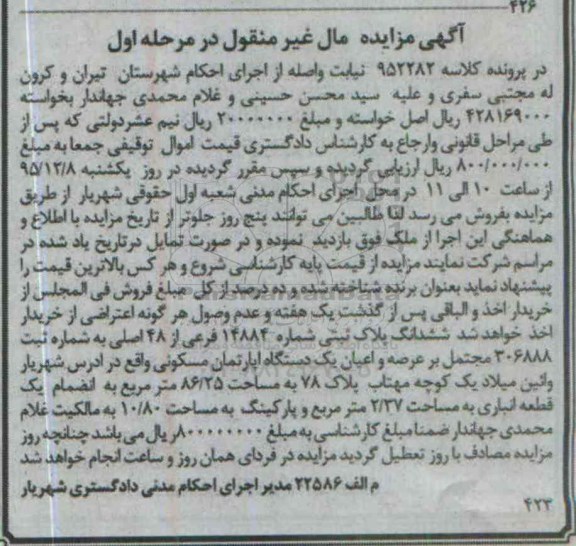 ۴۲۶
آگهی مزایده مال غیر منقول در مرحله اول
در پرونده کلاسه ۹۵۲۲۸۲ نیابت واصله از اجرای احکام شهرستان تیران و کرون
له مجتبی سفری و علیه سید محسن حسینی و غلام محمدی جهاندار بخواسته
۴۲۸۱۶۹۰۰۰ ریال اصل خواسته و مبلغ ۲۰۰۰۰۰۰۰ ریال نیم عشردولتی که پس از
طی مراحل قانونی وارجاع به کارشناس دادگستری قیمت اموال توقیفی جمعا به مبلغ
۸۰۰/۰۰۰/۰۰۰ ریال ارزیابی گردیده و سپس مقرر گردیده در روز یکشنبه ۹۵/۱۲/۸
از ساعت ۱۰ الی ۱۱ در محل اجرای احکام مدنی شعبه اول حقوقی شهریار از طریق
مزایده بفروش می رسد لذا طالبین می توانند پنج روز جلوتر از تاریخ مزایده با اطلاع و
هماهنگی این اجرا از ملک فوق بازدید نموده و در صورت تمایل درتاریخ یاد شده در
مراسم شرکت نمایند مزایده از قیمت پایه کارشناسی شروع و هر کس بالاترین قیمت را
پیشنهاد نماید بعنوان برنده شناخته شده و ده درصد از کل مبلغ فروش فی المجلس از
خریدار اخذ و الباقی پس از گذشت یک هفته و عدم وصول هر گونه اعتراضی از خریدار
اخذ خواهد شد ششدانگ پلاک ثبتی شماره ۱۴۸۸۴ فرعی از ۴۸ اصلی به شماره ثبت
۳۰۶۸۸۸ مجتمل بر عرصه و اعیان یک دستگاه اپارتمان مسکونی واقع در ادرس شهریار
وائین میلاد یک کوچه مهتاب پلاک ۷۸ به مساحت ۸۶/۲۵ متر مربع به انضمام یک
قطعه انباری به مساحت ۲/۳۷ متر مربع و پارکینگ به مساحت ۱۰/۸۰ به مالکیت غلام
محمدی جهاندار ضمنا مبلغ کارشناسی به مبلغ ۸۰۰۰۰۰۰۰۰ ریال می باشد چنانچه روز
مزایده مصادف با روز تعطیل گردید مزایده در فردای همان روز و ساعت انجام خواهد شد
م الف ۲۲۵۸۶ مدیر اجرای احکام مدنی دادگستری شهریار
۴۲۳